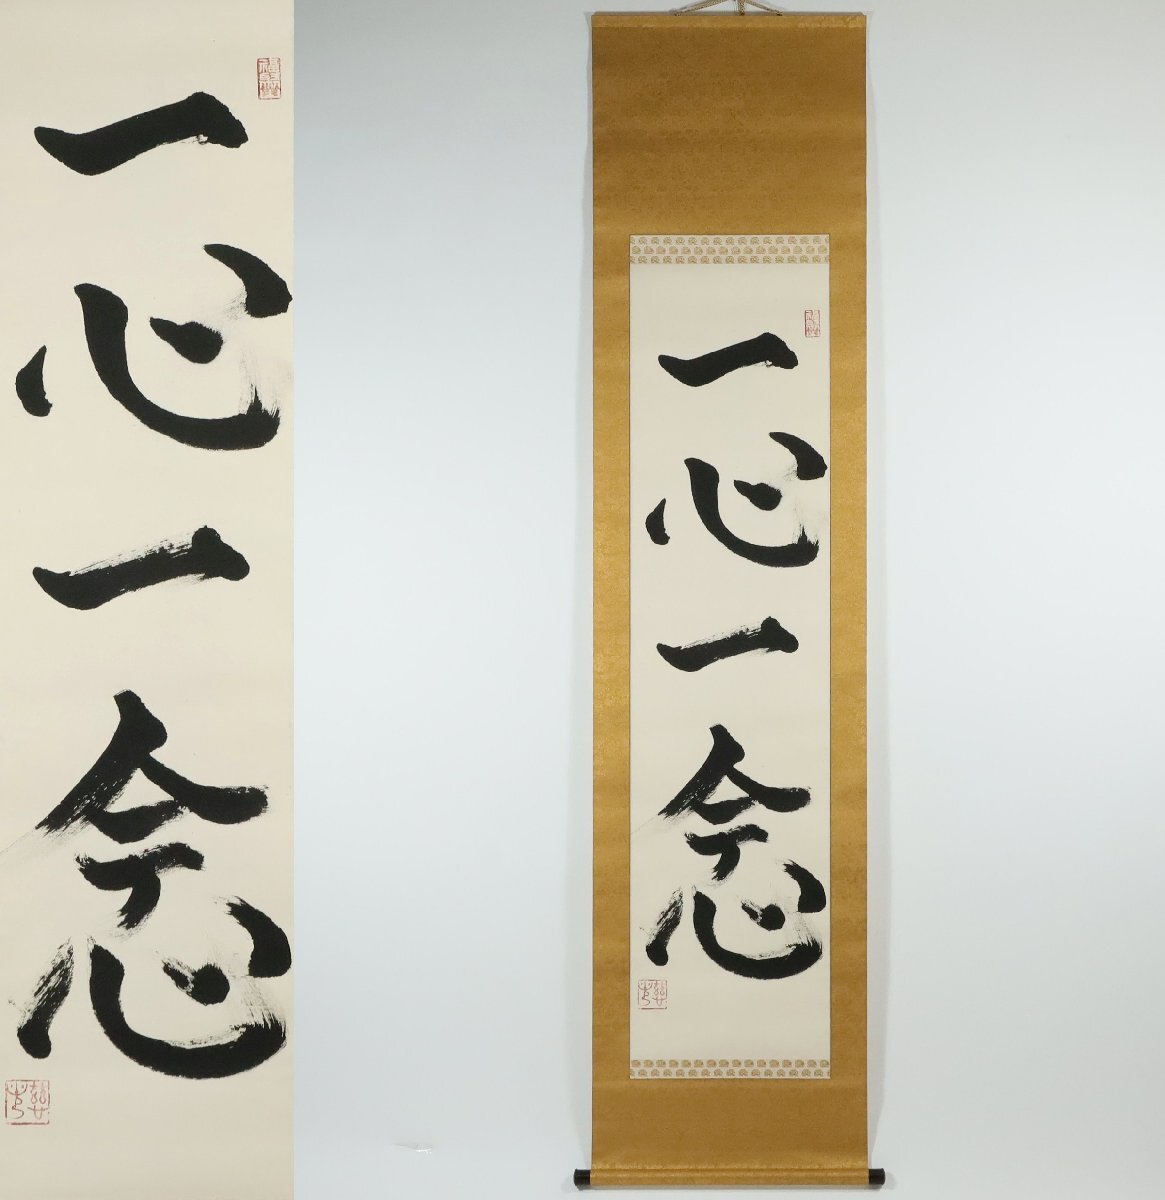 一心一念
一心一念